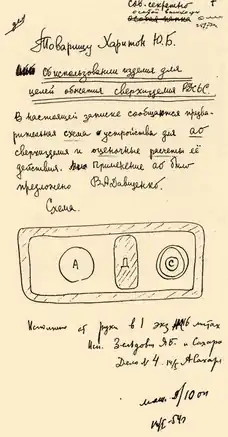 Сов. секретно
особой важности
особая папка
Товарищу Харитон Ю.Б.
Об использовании изделия для
целей обжатия сверхизделия РДС-6С.
В настоящей записке сообщается предва-
рительная схема устройства для АО
сверхизделия и оценочные расчеты её
действия. Применение АО было
предложено В.А.Давиденко.
Схема.
А
Д
С
Исполнено от руки в 1 экз на листах
Исп. Зельдович ЯБ. и Сахаров
Дело № 4. А Сахаров
14/I-54г